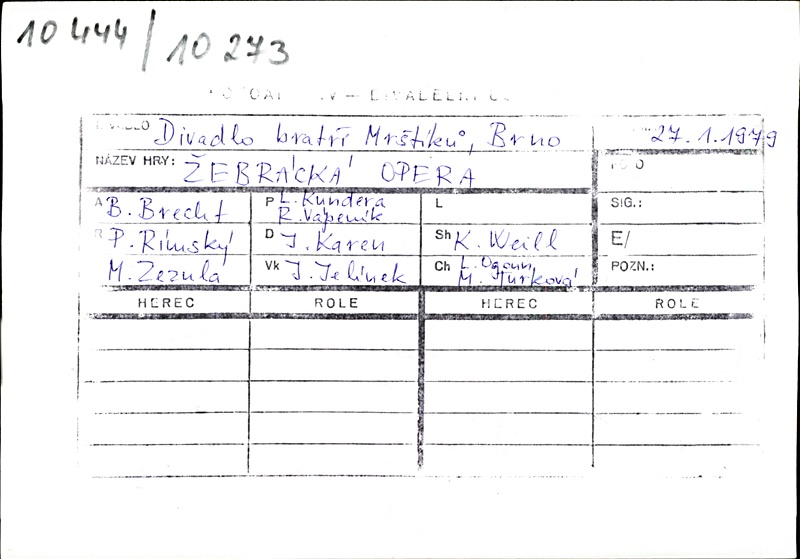 10 444 / 10 273
DIVADLO Divadlo bratří Mrštíků, Brno 27.1.1979
NÁZEV HRY: ŽEBRÁCKÁ OPERA FOTO
A B. Brecht P L. Kundera R. Vápeník L SIG.:
R P. Rímský D J. Karen Sh K. Weill E/
M. Zezula Vk J. Jelínek Ch L. Ogoun M. Turková POZN.:
HEREC ROLE HEREC ROLE